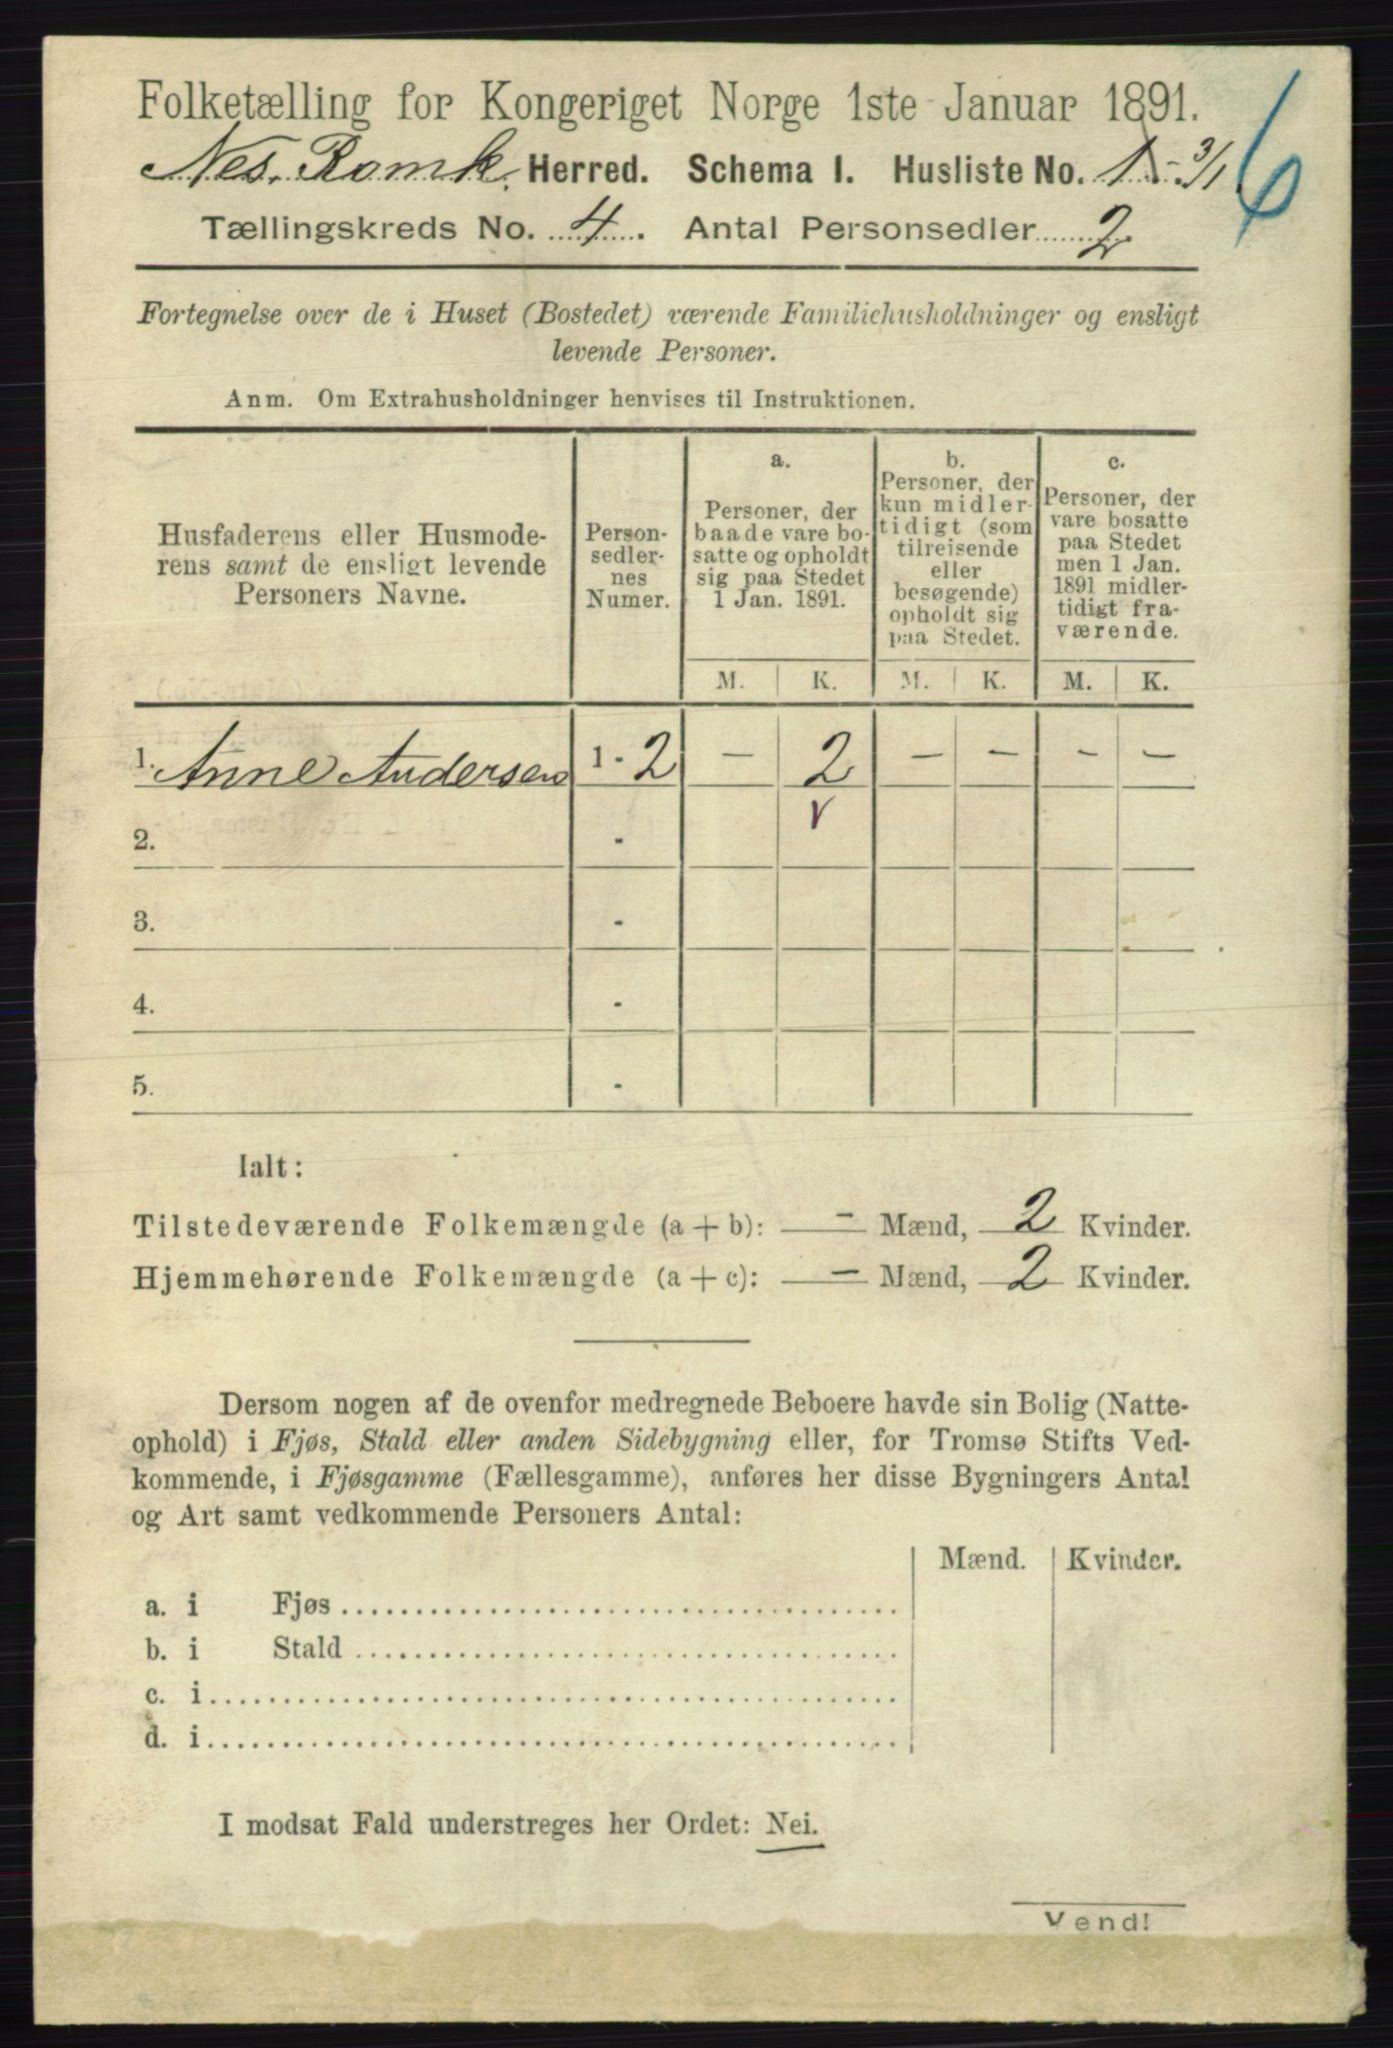 Folketælling for Kongeriget Norge 1ste Januar 1891.
Nes. Romk. Herred. Schema I. Husliste No. 1 - 3/1. 6
Tællingskreds No. 4. Antal Personsedler 2
Fortegnelse over de i Huset (Bostedet) værende Familiehusholdninger og ensligt
levende Personer.
Anm. Om Extrahusholdninger henvises til Instruktionen.
Husfaderens eller Husmode-
rens samt de ensligt levende
Personers Navne.
Person-
sedler-
nes
Numer.
a.
Personer, der
baade vare bo-
satte og opholdt
sig paa Stedet
1 Jan. 1891.
b.
Personer, der
kun midler-
tidigt (som
tilreisende
eller
besøgende)
opholdt sig
paa Stedet.
c.
Personer, der
vare bosatte
paa Stedet
men 1 Jan.
1891 midler-
tidigt fra-
værende.
M. K. M. K. M. K.
1. Anne Andersen 1 - 2 — 2 — — — —
v
2. -
3. -
4. -
5. -
Ialt:
Tilstedeværende Folkemængde (a + b): — Mænd, 2 Kvinder.
Hjemmehørende Folkemængde (a + c): — Mænd, 2 Kvinder.
Dersom nogen af de ovenfor medregnede Beboere havde sin Bolig (Natte-
ophold) i Fjøs, Stald eller anden Sidebygning eller, for Tromsø Stifts Ved-
kommende, i Fjøsgamme (Fællesgamme), anføres her disse Bygningers Antal
og Art samt vedkommende Personers Antal:
Mænd. Kvinder.
a. i Fjøs
b. i Stald
c. i
d. i
I modsat Fald understreges her Ordet: Nei.
Vend!